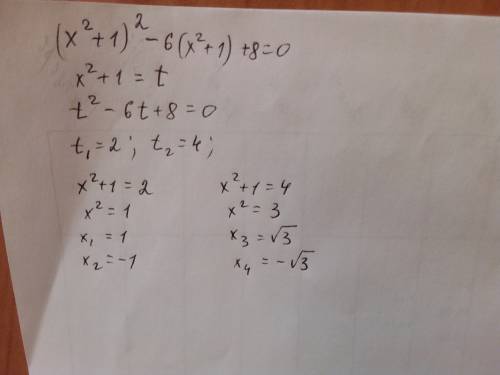 (x²+1)²-6(x²+1)+8=0
x²+1=t
t²-6t+8=0
t₁=2; t₂=4;
x²+1=2
x²=1
x₁=1
x₂=-1
x²+1=4
x²=3
x₃=√3
x₄=-√3